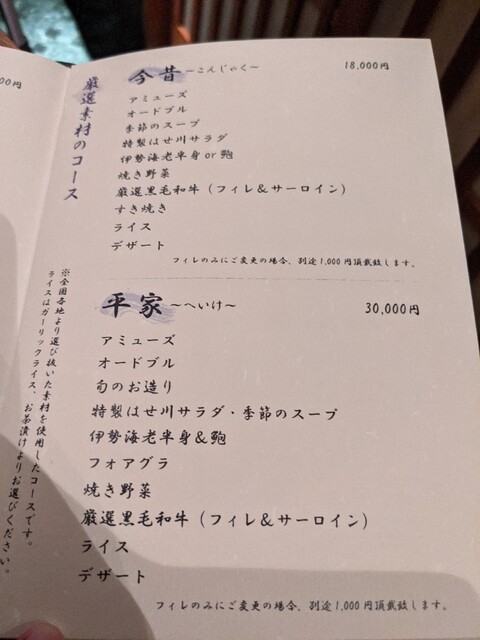 00円
厳選素材のコース
今昔 ～こんじゃく～ 18,000円
アミューズ
オードブル
季節のスープ
特製はせ川サラダ
伊勢海老半身or鮑
焼き野菜
厳選黒毛和牛（フィレ＆サーロイン）
すき焼き
ライス
デザート
フィレのみにご変更の場合、別途1,000円頂戴致します。
平家 ～へいけ～ 30,000円
アミューズ
オードブル
旬のお造り
特製はせ川サラダ・季節のスープ
伊勢海老半身＆鮑
フォアグラ
焼き野菜
厳選黒毛和牛（フィレ＆サーロイン）
ライス
デザート
フィレのみにご変更の場合、別途1,000円頂戴致します。
※全国各地より選び抜いた素材を使用したコースです。
ライスはガーリックライス、お茶漬けよりお選びください。